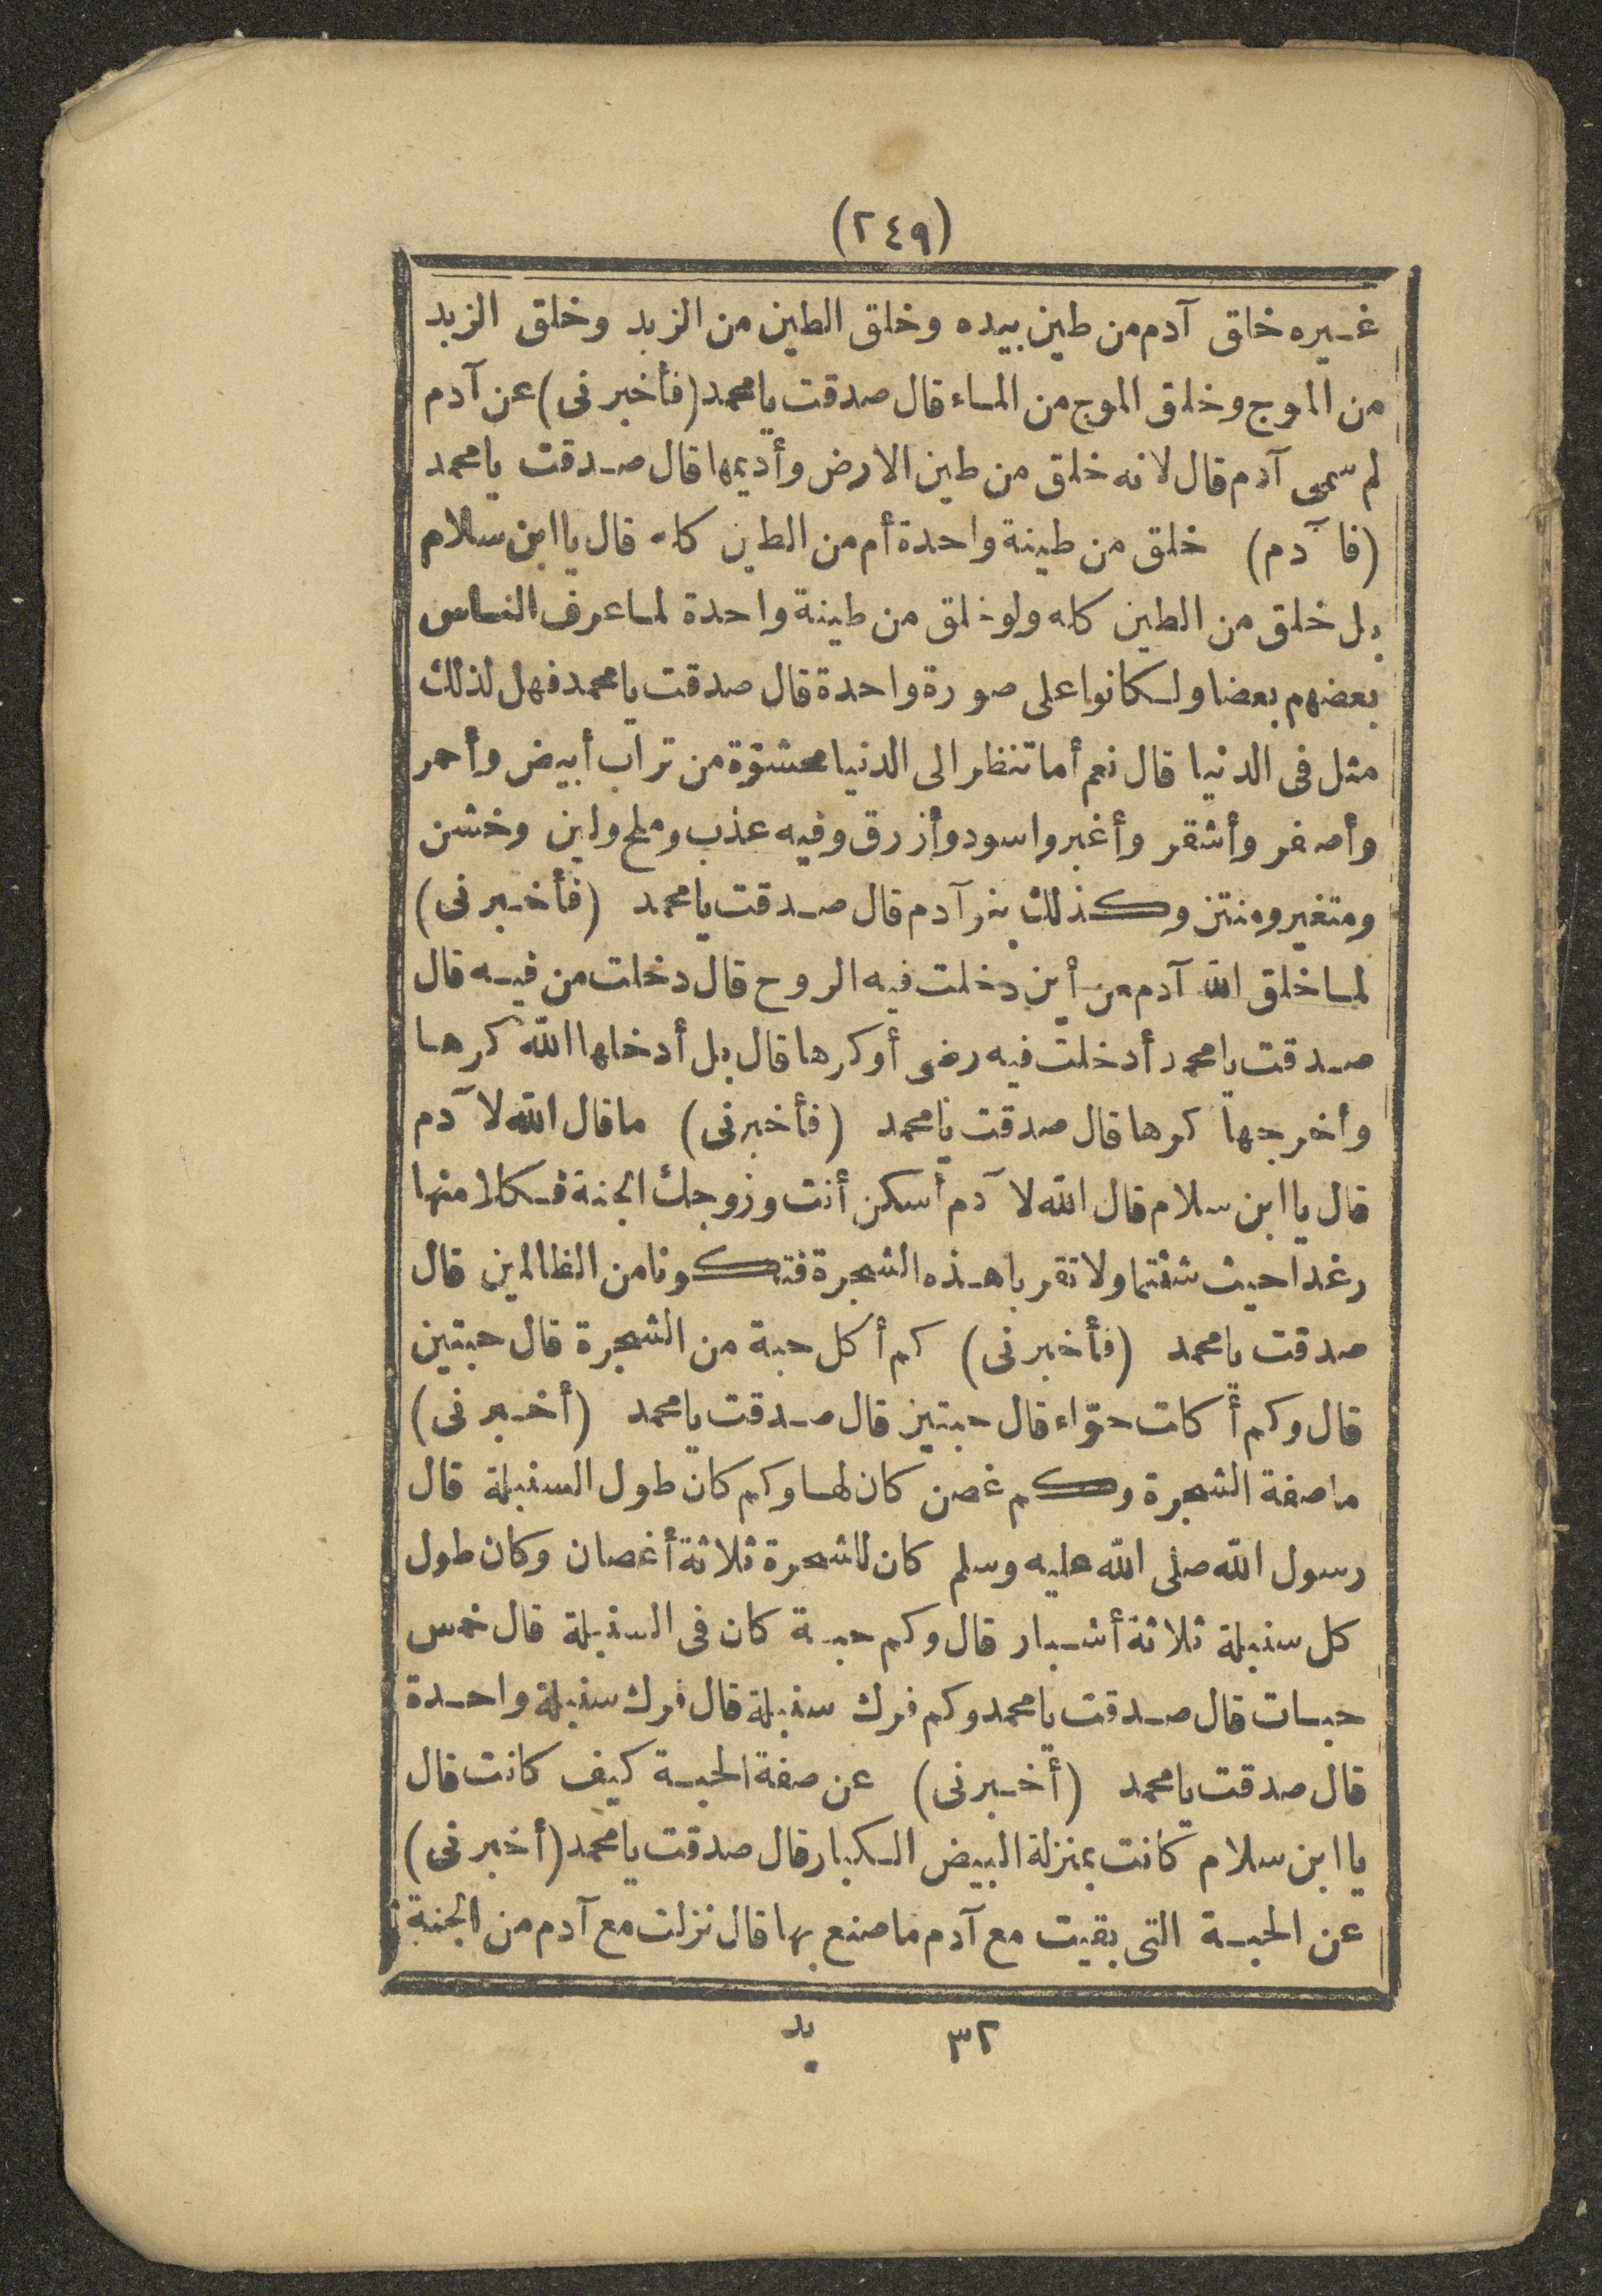 (٢٤٩)
غيره خلق آدم من طين بيده وخلق الطين من الزبد وخلق الزبد
من الموج وخلق الموج من الماء قال صدقت يا محمد (فأخبرنى) عن آدم
لم سمى آدم قال لانه خلق من طين الارض وأديمها قال صدقت يا محمد
(فآدم) خلق من طينة واحدة أم من الطين كله قال يا ابن سلام
بل خلق من الطين كله ولو خلق من طينة واحدة لما عرف الناس
بعضهم بعضا ولكانوا على صورة واحدة قال صدقت يا محمد فهل لذلك
مثل فى الدنيا قال نعم أما تنظر الى الدنيا محشوّة من تراب أبيض وأحمر
وأصفر وأشقر وأغبر واسود وأزرق وفيه عذب وملح ولين وخشن
ومتغير ومنتن وكذلك بنو آدم قال صدقت يا محمد (فأخبرنى)
لما خلق الله آدم من أين دخلت فيه الروح قال دخلت من فيه قال
صدقت يا محمد أدخلت فيه رضى أو كرها قال بل أدخلها الله كرها
وأخرجها كرها قال صدقت يا محمد (فأخبرنى) ما قال الله لآدم
قال يا ابن سلام قال الله لآدم أسكن أنت وزوجك الجنة فكلا منها
رغدا حيث شئتما ولا تقربا هذه الشجرة فتكونا من الظالمين قال
صدقت يا محمد (فأخبرنى) كم أكل حبة من الشجرة قال حبتين
قال وكم أكلت حوّاء قال حبتين قال صدقت يا محمد (أخبرنى)
ما صفة الشجرة وكم غصن كان لها وكم كان طول السنبلة قال
رسول الله صلى الله عليه وسلم كان للشجرة ثلاثة أغصان وكان طول
كل سنبلة ثلاثة أشبار قال وكم حبة كان فى السنبلة قال خمس
حبات قال صدقت يا محمد وكم فرك سنبلة قال فرك سنبلة واحدة
قال صدقت يا محمد (أخبرنى) عن صفة الحبة كيف كانت قال
يا ابن سلام كانت بمنزلة البيض الكبار قال صدقت يا محمد (أخبرنى)
عن الحبة التى بقيت مع آدم ما صنع بها قال نزلت مع آدم من الجنة
٣٢ بد